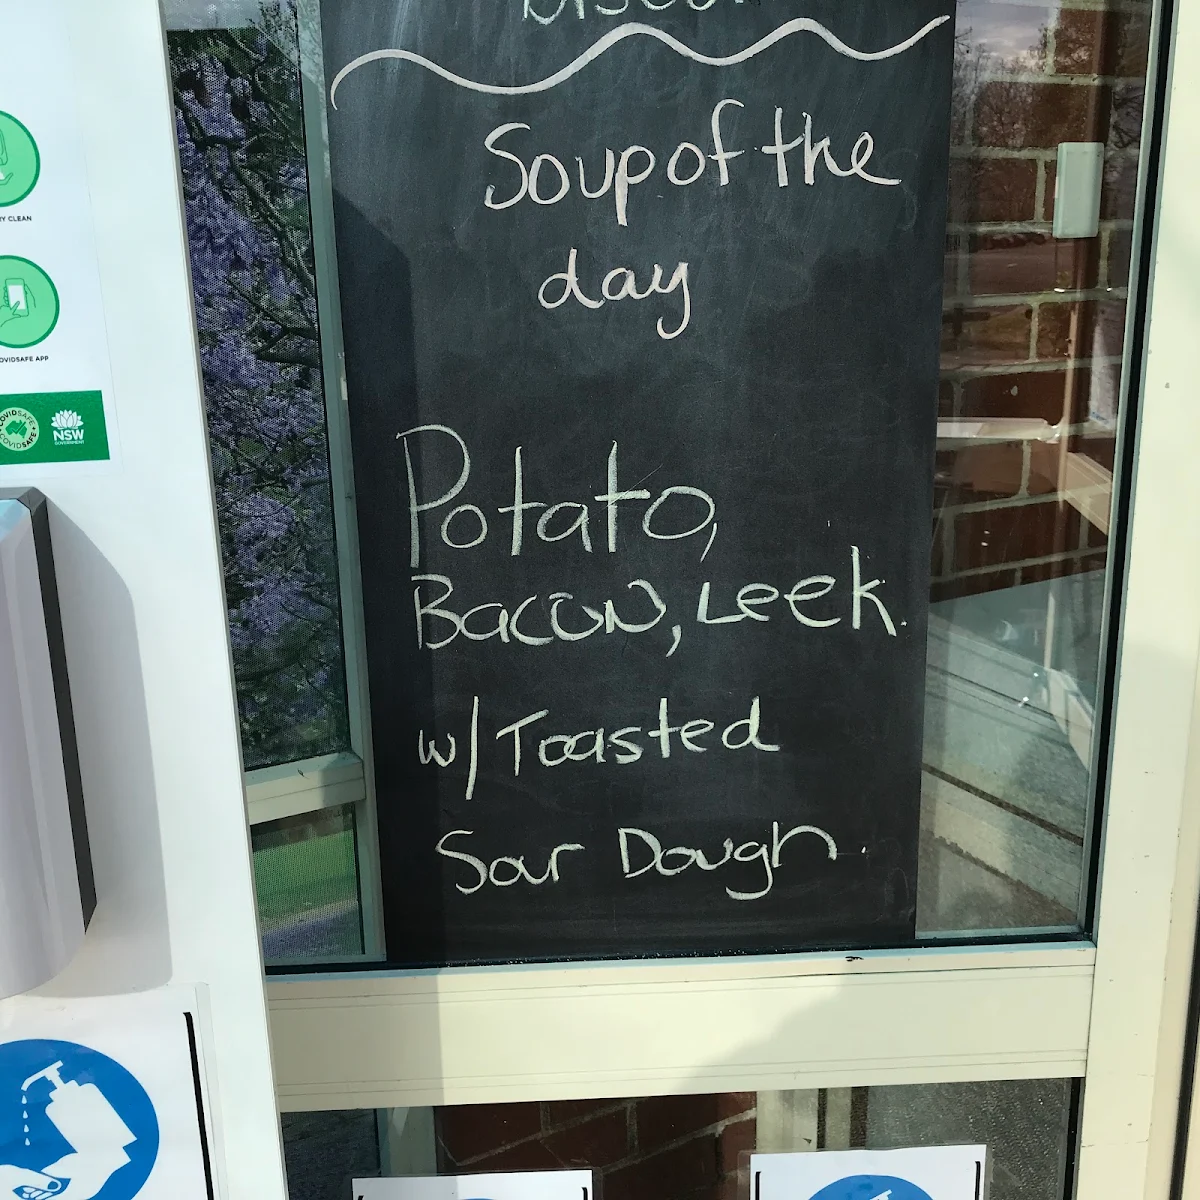 Soup of the
day
Potato,
Bacon, Leek.
w/ Toasted
Sour Dough.
RY CLEAN
OVIDSAFE APP
COVIDSAFE
COVIDSAFE
NSW
GOVERNMENT